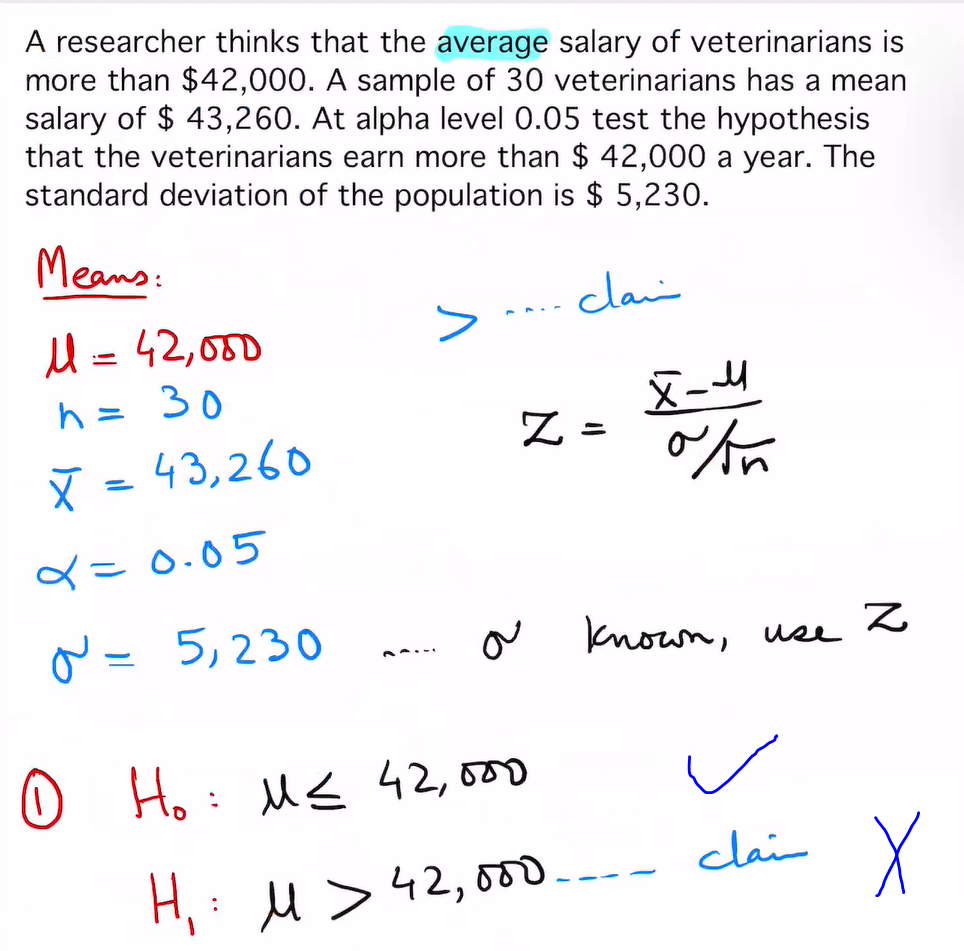 A researcher thinks that the average salary of veterinarians is
more than $42,000. A sample of 30 veterinarians has a mean
salary of $ 43,260. At alpha level 0.05 test the hypothesis
that the veterinarians earn more than $ 42,000 a year. The
standard deviation of the population is $ 5,230.
Means:
> ..... claim
μ = 42,000
n = 30
Z = (x̄ - μ) / (σ/√n)
x̄ = 43,260
α = 0.05
σ = 5,230 ...... σ known, use Z
① H₀ : μ ≤ 42,000 ✓
H₁ : μ > 42,000 ---- claim X